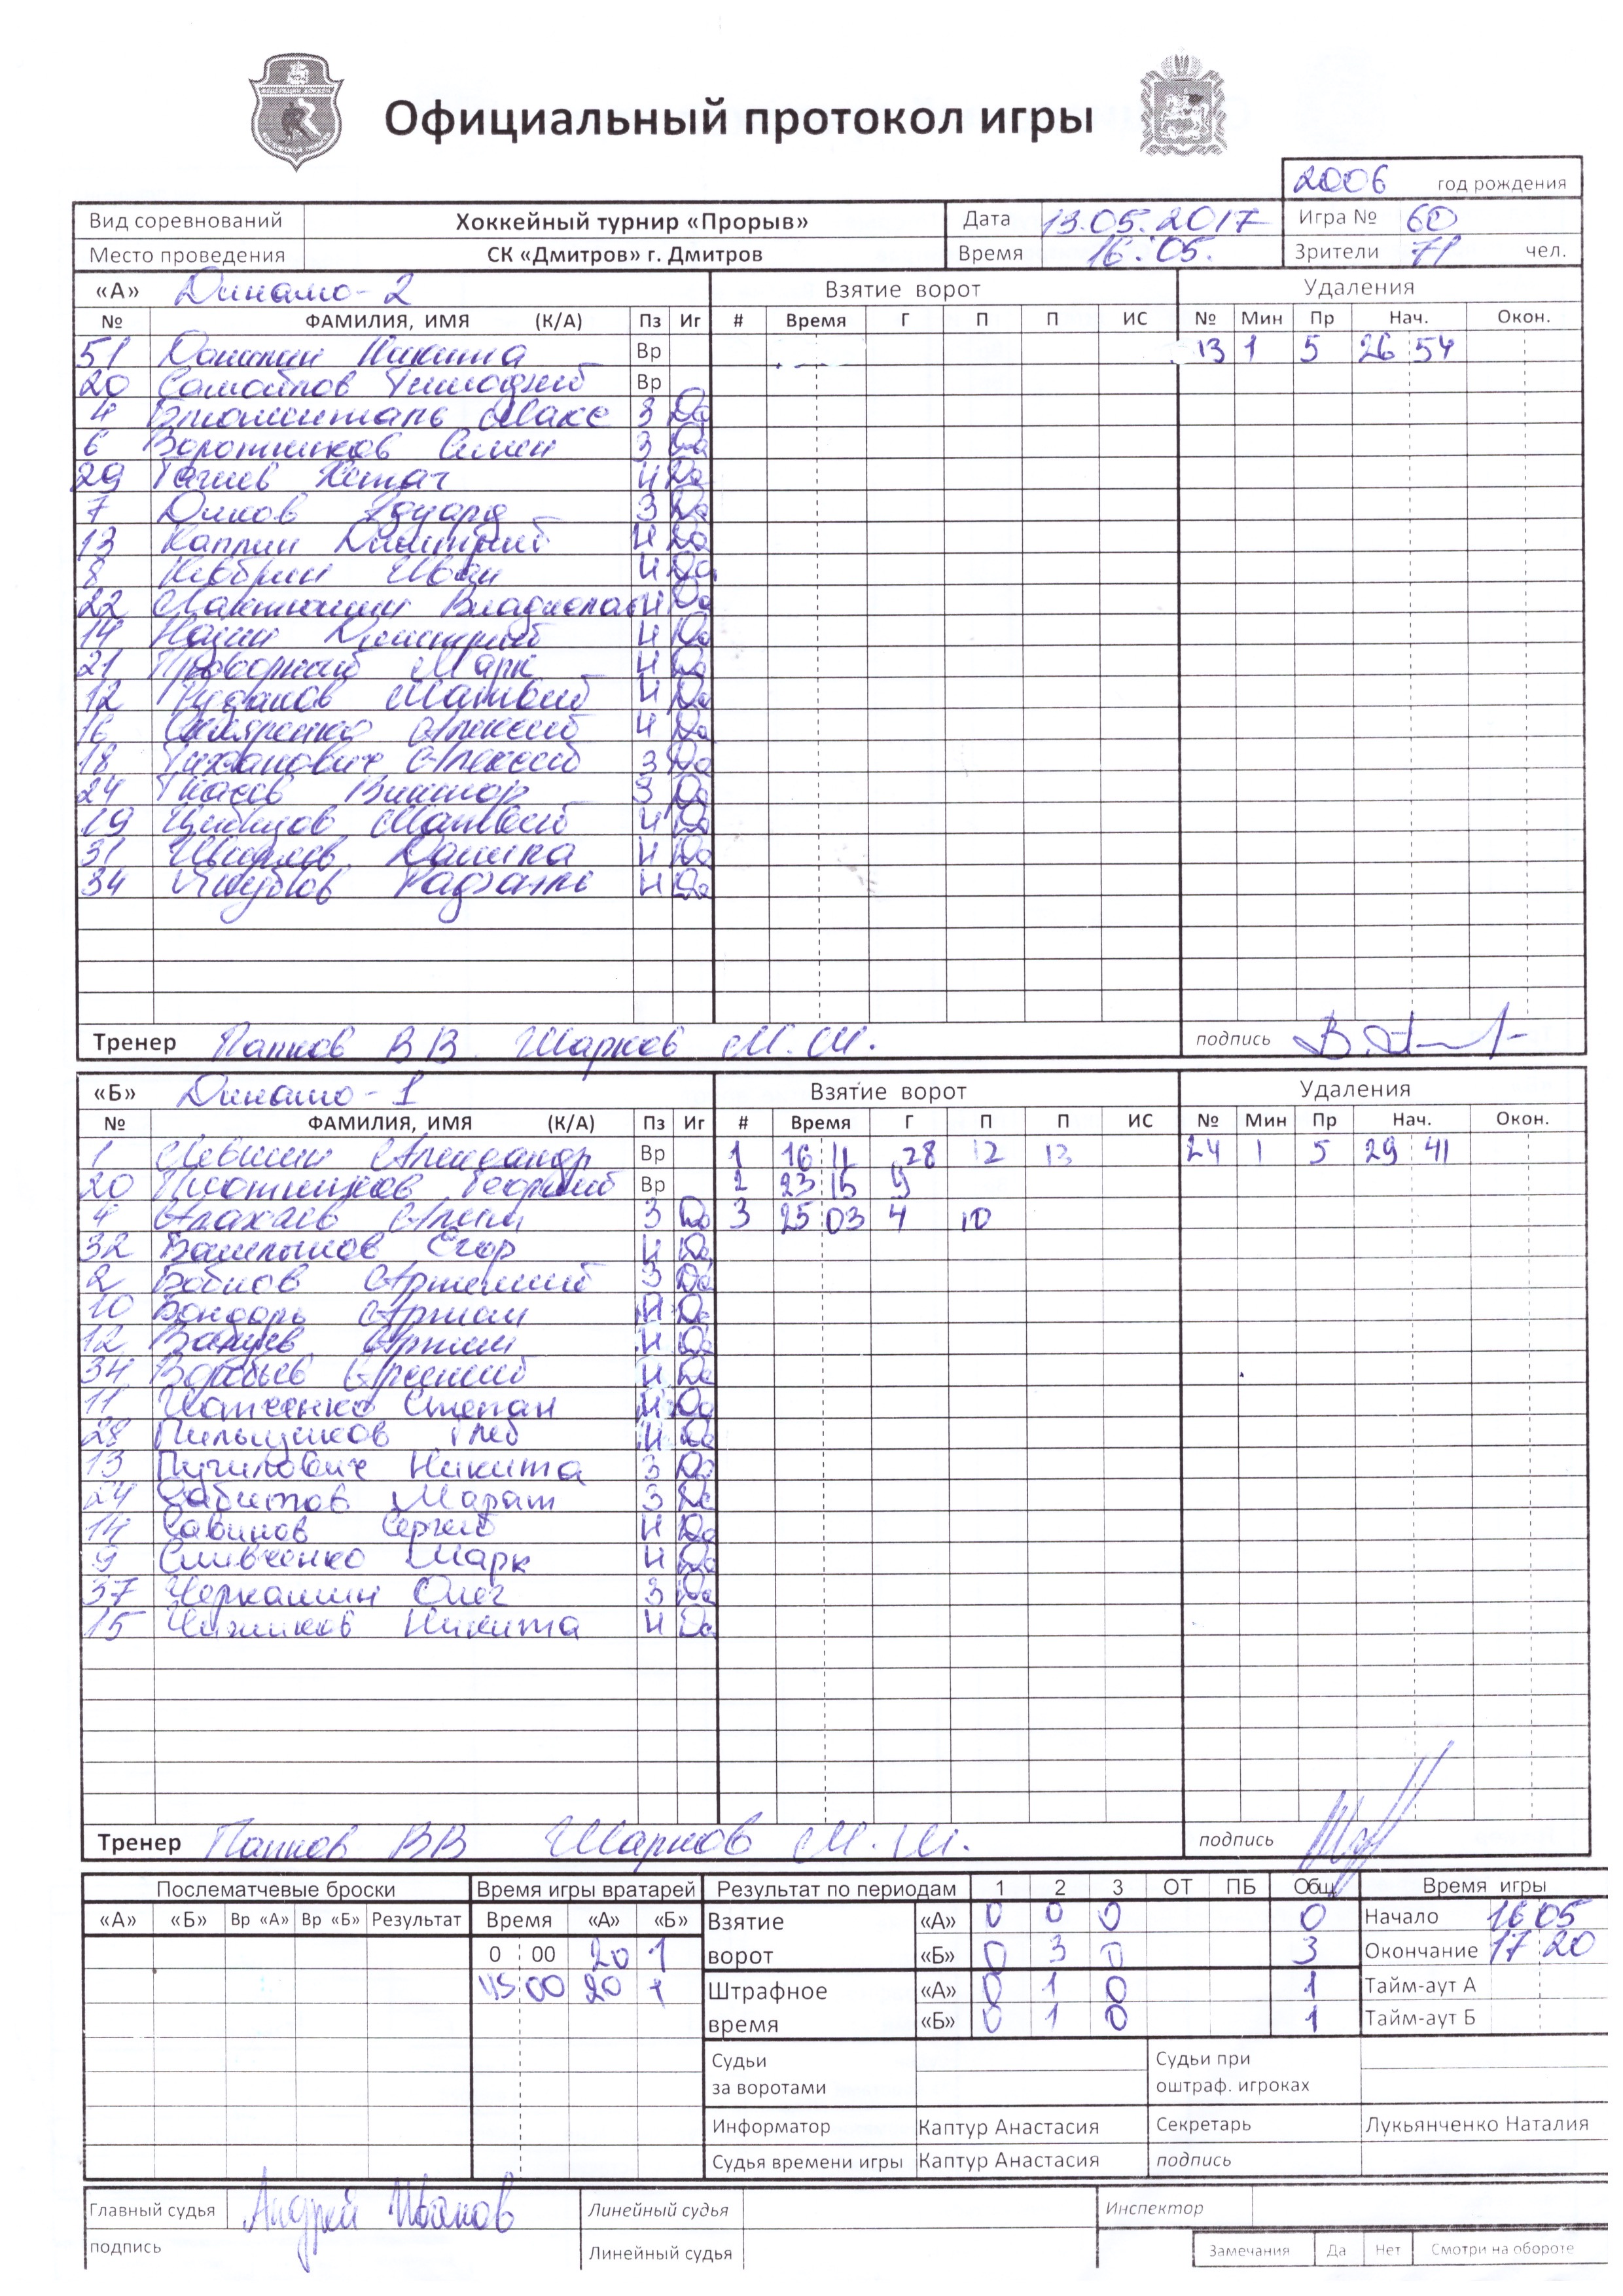 Официальный протокол игры
2006 год рождения
Вид соревнований Хоккейный турнир «Прорыв» Дата 13.05.2017 Игра № 60
Место проведения СК «Дмитров» г. Дмитров Время 16:05. Зрители 71 чел.
«А» Динамо-2 Взятие ворот Удаления
№ ФАМИЛИЯ, ИМЯ (К/А) Пз Иг # Время Г П П ИС № Мин Пр Нач. Окон.
51 Данилин Никита Вр 13 1 5 26 54
20 Самойлов Тимофей Вр
4 Блюменталь Макс З Да
6 Воротников Семен З Да
29 Гагиев Хетаг Н Да
7 Диков Эдуард З Да
13 Каплин Дмитрий Н Да
8 Иван Н Да
22 Лактюшин Владислав Н Да
14 Нагин Дмитрий Н Да
21 Проворный Марк Н Да
12 Рудаков Матвей Н Да
16 Скляренко Алексей Н Да
18 Тиханович Алексей З Да
24 Виктор З Да
19 Цибизов Матвей Н Да
31 Данила Н Да
34 Якубов Рафаэль Н Да
Тренер Папков В В Шарков М. Ш. подпись
«Б» Динамо-1 Взятие ворот Удаления
№ ФАМИЛИЯ, ИМЯ (К/А) Пз Иг # Время Г П П ИС № Мин Пр Нач. Окон.
1 Левшин Александр Вр 1 16 11 28 12 13 24 1 5 29 41
20 Плотников Георгий Вр 2 23 15 9
4 Алахаев Алим З Да 3 25 03 4 10
32 Башлыков Егор Н Да
2 Бобков Артемий З Да
10 Бондарь Артем Н Да
12 Артем Н Да
34 Воробьев Арсений Н Да
11 Степан Н Да
28 Пильщиков Глеб Н Да
13 Пугилович Никита З Да
24 Сабитов Марат З Да
14 Савинов Сергей Н Да
9 Сливченко Марк Н Да
37 Черкашин Олег З Да
15 Чижиков Никита Н Да
Тренер Папков В В Шарков М. Ш. подпись
Послематчевые броски Время игры вратарей Результат по периодам 1 2 3 ОТ ПБ Общ Время игры
«А» «Б» Вр «А» Вр «Б» Результат Время «А» «Б» Взятие «А» 0 0 0 0 Начало 16 05
0 00 20 1 ворот «Б» 0 3 0 3 Окончание 17 20
45 00 20 1 Штрафное «А» 0 1 0 1 Тайм-аут А
время «Б» 0 1 0 1 Тайм-аут Б
Судьи за воротами Судьи при оштраф. игроках
Информатор Каптур Анастасия Секретарь Лукьянченко Наталия
Судья времени игры Каптур Анастасия подпись
Главный судья Андрей Иванов Линейный судья Инспектор
подпись Линейный судья Замечания Да Нет Смотри на обороте